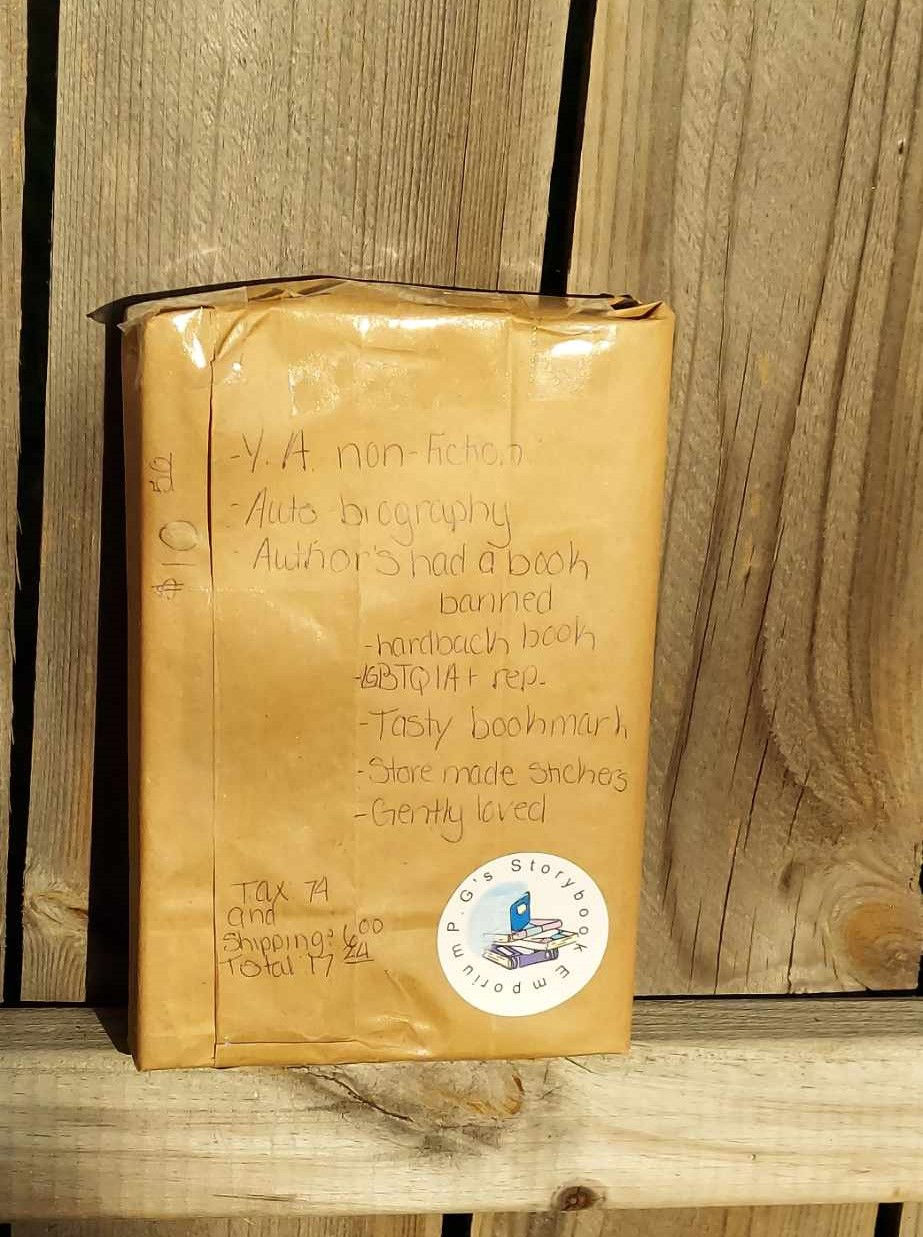 $10 50
- Y.A. non-fiction
- Auto biography
Author's had a book
banned
- hardback book
- LGBTQIA+ rep.
- Tasty bookmark
- Store made stickers
- Gently loved
Tax 74
and
Shipping: 6.00
Total 17 24
P.G's Storybook Emporium